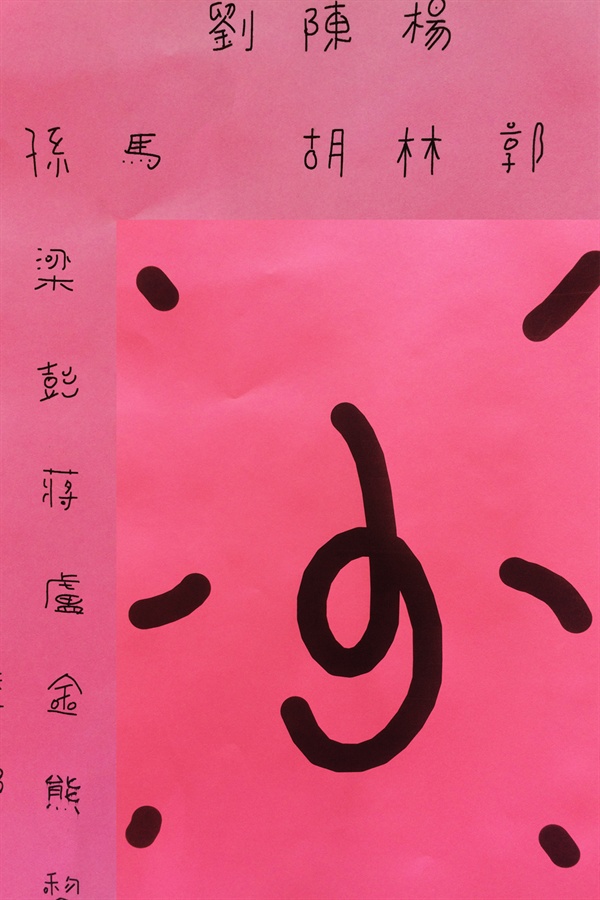 劉 陳 楊
孫 馬 胡 林 郭
梁
彭
蔣
盧
金
熊